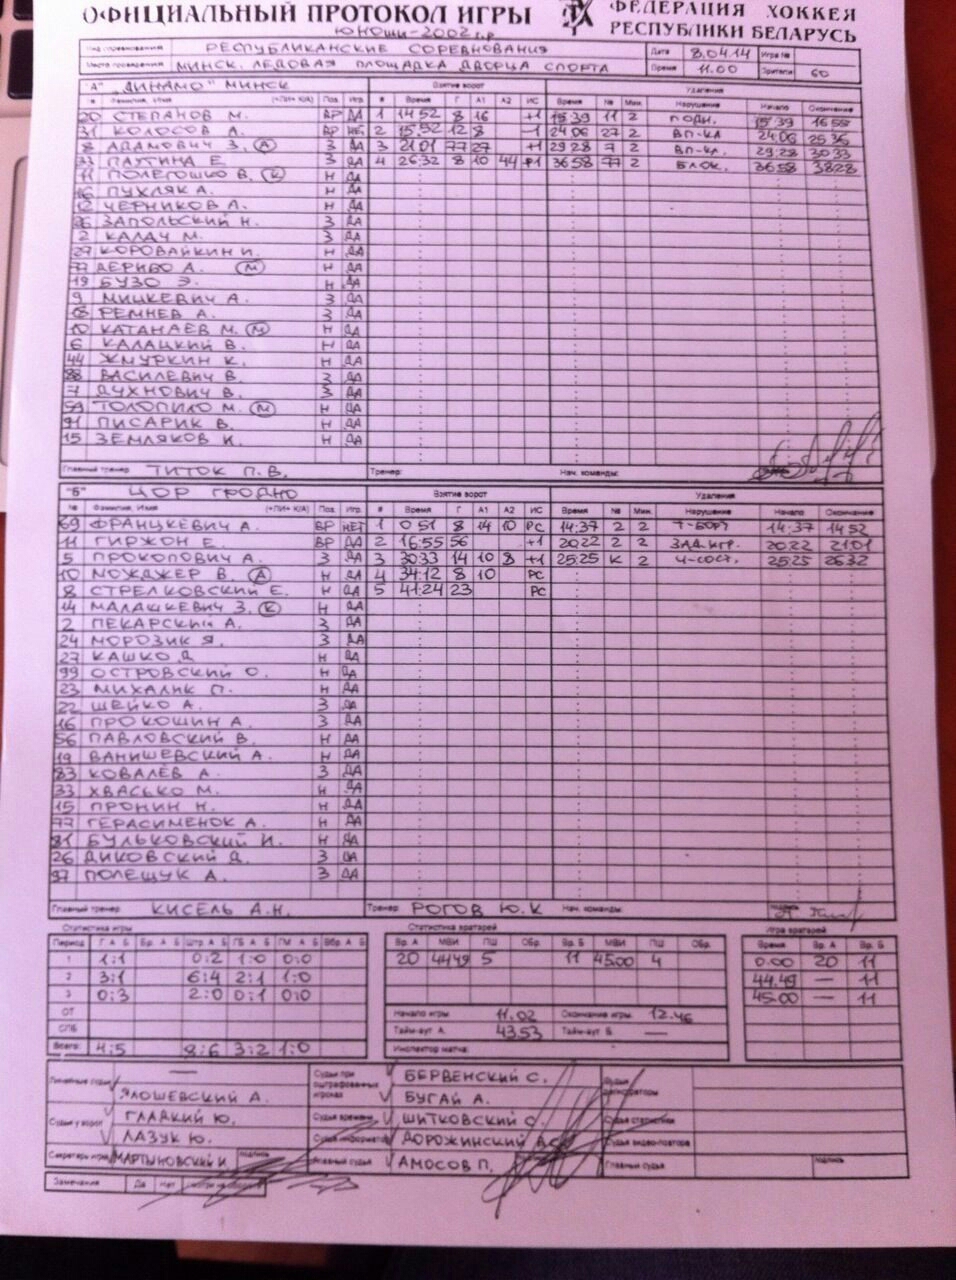 ОФИЦИАЛЬНЫЙ ПРОТОКОЛ ИГРЫ
ФЕДЕРАЦИЯ ХОККЕЯ
РЕСПУБЛИКИ БЕЛАРУСЬ
ЮНОШИ-2002 г.р
Вид соревнования РЕСПУБЛИКАНСКИЕ СОРЕВНОВАНИЯ Дата 8.04.14 Игра №
Место проведения МИНСК. ЛЕДОВАЯ ПЛОЩАДКА ДВОРЦА СПОРТА Время 11.00 Зрители 60
"А" "ДИНАМО" МИНСК Взятие ворот Удаления
№ Фамилия, Имя Поз. Игр. # Время Г А1 А2 ИС Время № Мин. Нарушение Начало Окончание
20 СТЕПАНОВ М. ВР ДА 1 14 52 8 16 +1 15 39 11 2 ПОДН. 15 39 16 55
31 КОЛОСОВ А. ВР НЕТ 2 15 52 12 8 -1 24 06 27 2 ВП-КА 24 06 25 36
8 АДАМОВИЧ З. (А) З ДА 3 21 01 77 27 +1 29 28 7 2 ВП-КА. 29 28 30 33
ПАУТИНА Е З ДА 4 26 32 8 10 44 +1 36 58 77 2 БЛОК. 36 58 38 28
11 ПОЛЕГОШКО В. (К) Н ДА
16 ПУХЛЯК А. Н ДА
12 ЧЕРНИКОВ А. Н ДА
ЗАПОЛЬСКИЙ Н. З ДА
2 КАЛАЧ М. З ДА
КОРОВАЙКИН И. Н ДА
77 ДЕРИБО А. (М) Н ДА
19 БУЗО Э. Н ДА
9 МИЦКЕВИЧ А. З ДА
РЕМНЕВ А. З ДА
10 КАТАНАЕВ М. (М) Н ДА
6 КАЛАЦКИЙ В. Н ДА
44 ЖМУРКИН К. Н ДА
88 ВАСИЛЕВИЧ В. З ДА
7 ДУХНОВИЧ В. З ДА
59 ТОЛОПИЛО М. (М) Н ДА
91 ПИСАРИК В. Н ДА
15 ЗЕМЛЯКОВ И. Н ДА
Главный тренер ТИТОК П.В. Тренер: Нач. команды:
"Б" ЦОР ГРОДНО Взятие ворот Удаления
№ Фамилия, Имя Поз. Игр. # Время Г А1 А2 ИС Время № Мин. Нарушение Начало Окончание
69 ФРАНЦКЕВИЧ А. ВР НЕТ 1 0 51 8 14 10 РС 14:37 2 2 Т-БОРТ 14:37 14 52
11 ГИРЖОН Е. ВР ДА 2 16:55 56 +1 20 22 8 2 ЗАД.ИГР. 20 22 21 01
5 ПРОКОПОВИЧ А. З ДА 3 30 33 14 10 8 +1 25:25 К 2 Ч-СОСТ. 25 25 26 32
10 МОЖДЖЕР В. (А) Н ДА 4 34:12 8 10 РС
8 СТРЕЛКОВСКИЙ Е. Н ДА 5 41:24 23 РС
14 МАЛАШКЕВИЧ З. (К) Н ДА
2 ПЕКАРСКИЙ А. З ДА
24 МОРОЗИК Я. З ДА
27 КАШКО Д Н ДА
99 ОСТРОВСКИЙ О. Н ДА
23 МИХАЛИК П. Н ДА
22 ШЕЙКО А. З ДА
16 ПРОКОШИН А. З ДА
56 ПАВЛОВСКИЙ В. Н ДА
19 ВАНИШЕВСКИЙ А. Н ДА
83 КОВАЛЁВ А. З ДА
33 ХВАСЬКО М. Н ДА
15 ПРОНИН Н. Н ДА
77 ГЕРАСИМЕНОК А. Н ДА
81 БУЛЬКОВСКИЙ И. Н ДА
26 ДИКОВСКИЙ Д. З ДА
97 ПОЛЕЩУК А. З ДА
Главный тренер КИСЕЛЬ А.Н. Тренер РОГОВ Ю.К Нач. команды:
Статистика игры Статистика вратарей Игра вратарей
Период Г А Б Бр. А Б Штр. А Б ГБ А Б ГМ А Б Вбр. А Б Вр. А МВИ ПШ Обр. Вр. Б МВИ ПШ Обр. Время Вр. А Вр. Б
1 1:1 0:2 1:0 0:0 20 44 49 5 11 45.00 4 0.00 20 11
2 3:1 6:4 2:1 1:0 44.49 — 11
3 0:3 2:0 0:1 0:0 45.00 — 11
ОТ Начало игры 11.02 Окончание игры 12.46
СПБ Тайм-аут А. 43.53 Тайм-аут Б. —
Всего: 4:5 8:6 3:2 1:0 Инспектор матча:
Линейные судьи — Судьи при оштрафованных игроках БЕРВЕНСКИЙ С.
ЯЛОШЕВСКИЙ А. БУГАЙ А.
Судьи у ворот ГЛАДКИЙ Ю. Судья времени ШИТКОВСКИЙ О. Судья статистики
ЛАЗУК Ю. Судья информатор ДОРОЖИНСКИЙ Судья видео-повтора
Секретарь игры МАРТЫНОВСКИЙ И. подпись Главный судья АМОСОВ П. Главный судья подпись
Замечания Да Нет